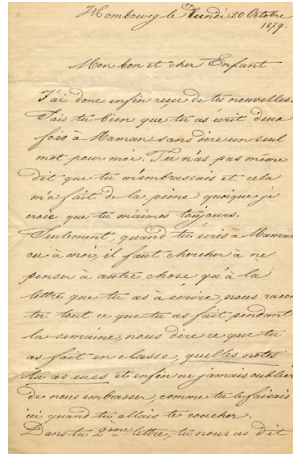 Hombourg le Lundi 20 Octobre
1879.
Mon bon et cher Enfant.
J'ai donc enfin reçu de tes nouvelles.
Sais tu bien que tu as écrit deux
fois à Maman sans dire un seul
mot pour moi. Tu n'as pas même
dit que tu m'embrassais et cela
m'a fait de la peine quoique je
crois que tu m'aimes toujours.
Seulement, quand tu écris à Maman
ou à moi, il faut chercher à ne
penser à autre chose qu'à la
lettre que tu as à écrire, nous racon
ter tout ce que tu as fait pendant
la semaine, nous dire ce que tu
as fait en classe, quelles notes
tu as eues et enfin ne jamais oublier
de nous embrasser, comme tu le faisais
ici quand tu allais te coucher.
Dans ta 2ème lettre, tu nous as dit